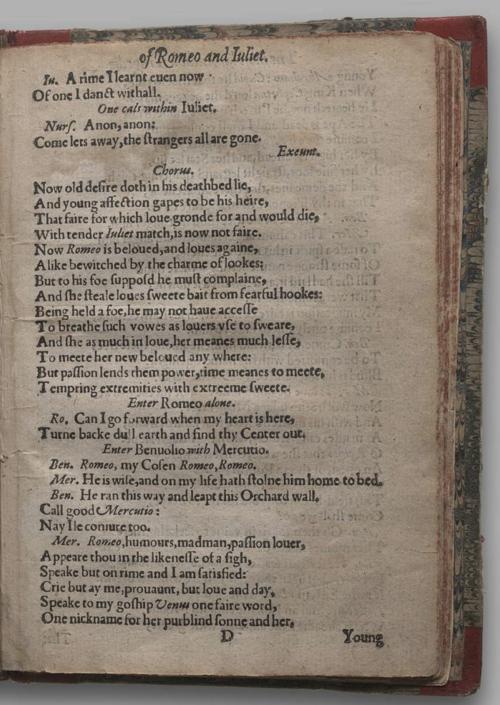 of Romeo and Iuliet.
Iu. A rime I learnt euen now
Of one I danct withall.
One cals within Iuliet.
Nurſ. Anon, anon:
Come lets away, the ſtrangers all are gone.
Exeunt.
Chorus.
Now old deſire doth in his deathbed lie,
And young affection gapes to be his heire,
That faire for which loue gronde for and would die,
With tender Iuliet match, is now not faire.
Now Romeo is beloued, and loues againe,
Alike bewitched by the charme of lookes:
But to his foe ſuppoſd he muſt complaine,
And ſhe ſteale loues ſweete bait from fearful hookes:
Being held a foe, he may not haue acceſſe
To breathe ſuch vowes as louers vſe to ſweare,
And ſhe as much in loue, her meanes much leſſe,
To meete her new beloued any where:
But paſſion lends them power, time meanes to meete,
Tempring extremities with extreeme ſweete.
Enter Romeo alone.
Ro. Can I go forward when my heart is here,
Turne backe dull earth and find thy Center out.
Enter Benuolio with Mercutio.
Ben. Romeo, my Coſen Romeo, Romeo.
Mer. He is wiſe, and on my life hath ſtolne him home to bed.
Ben. He ran this way and leapt this Orchard wall.
Call good Mercutio:
Nay Ile coniure too.
Mer. Romeo, humours, madman, paſſion louer,
Appeare thou in the likeneſſe of a ſigh,
Speake but on rime and I am ſatisfied:
Crie but ay me, prouaunt, but loue and day,
Speake to my goſhip Venus one faire word,
One nickname for her purblind ſonne and her,
D Young